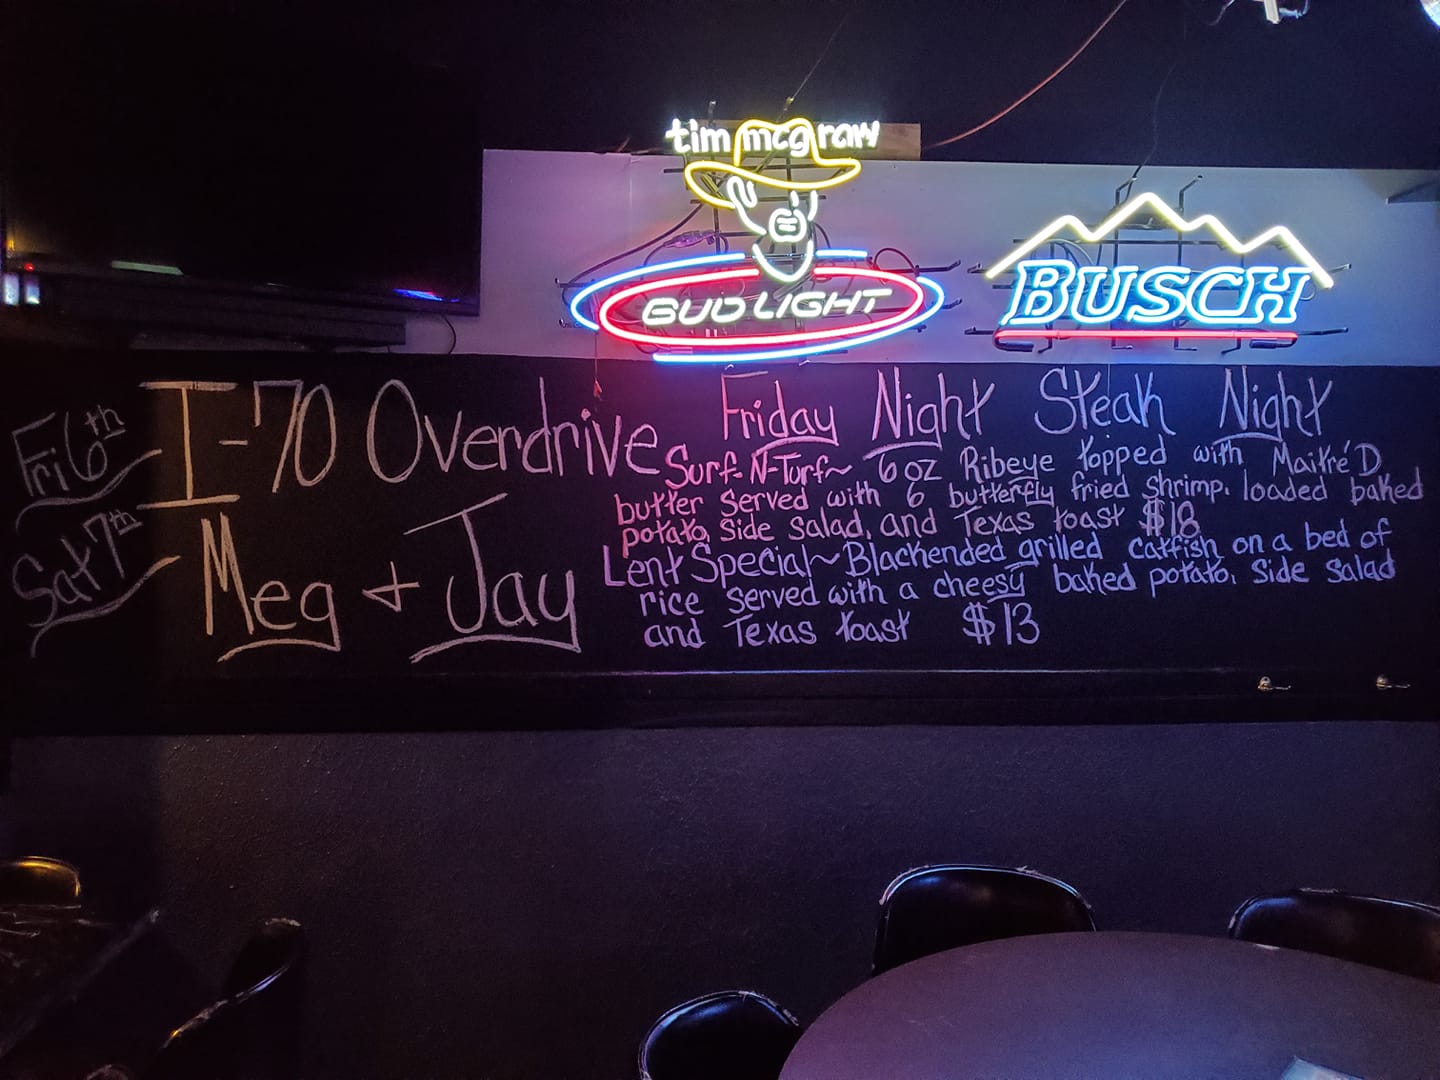 tim mcgraw
BUD LIGHT
BUSCH
Fri 6th
I-70 Overdrive
Sat 7th
Meg + Jay
Friday Night Steak Night
Surf-N-Turf~ 6oz Ribeye topped with Maitré D
butter served with 6 butterfly fried shrimp, loaded baked
potato, side salad, and Texas toast $18
Lent Special~ Blackended grilled catfish on a bed of
rice served with a cheesy baked potato, side salad
and Texas toast $13